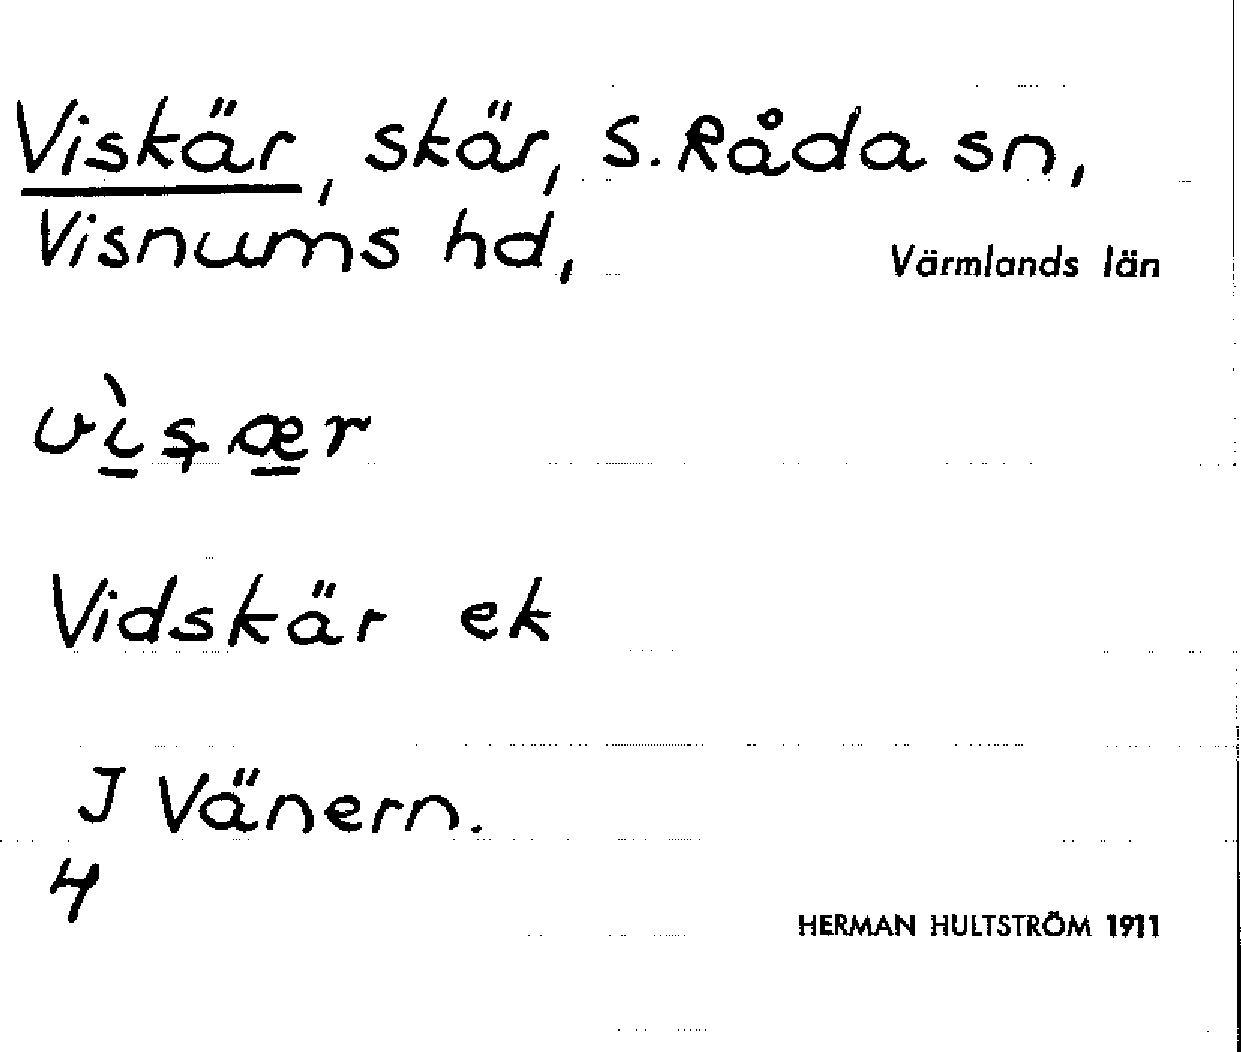 Viskär, skär, S. Råda sn,
Visnums hd, Värmlands län
Vidskär ek
I Vänern.
4
HERMAN HULTSTRÖM 1911